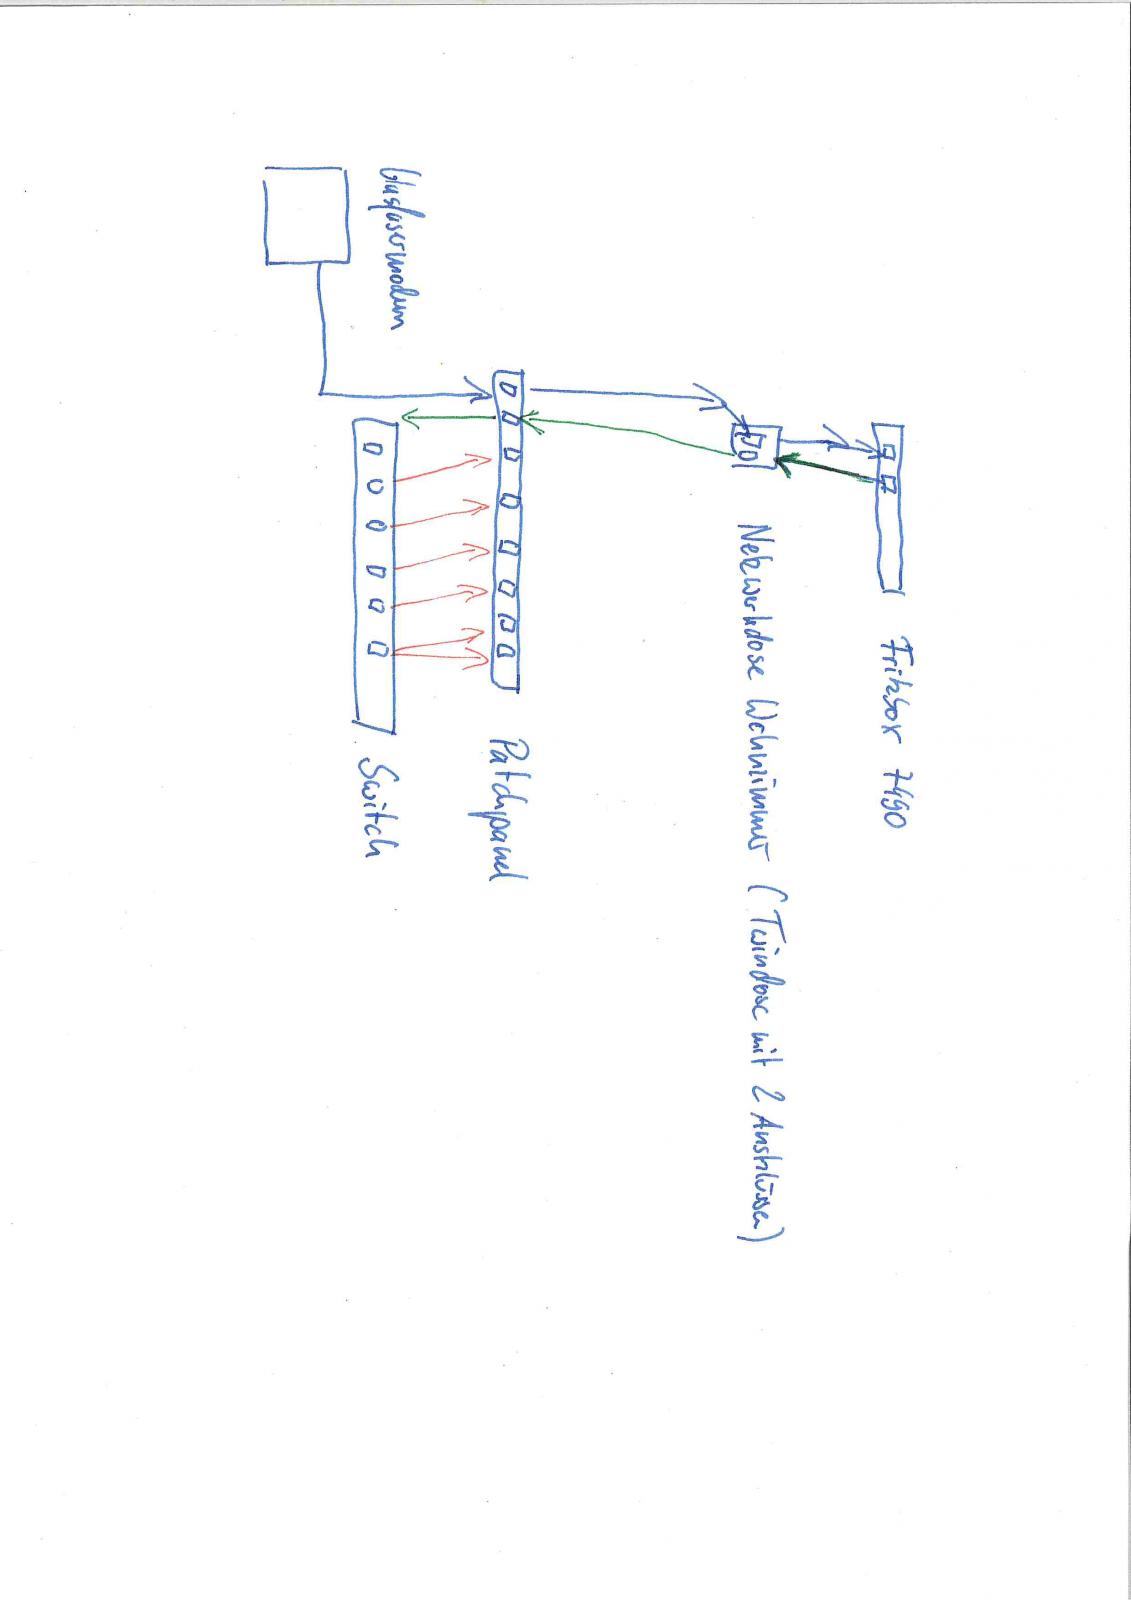 Glasfasermodem
Fritzbox 7490
Netzwerkdose Wohnzimmer (Twindose mit 2 Anschlüssen)
Patchpanel
Switch